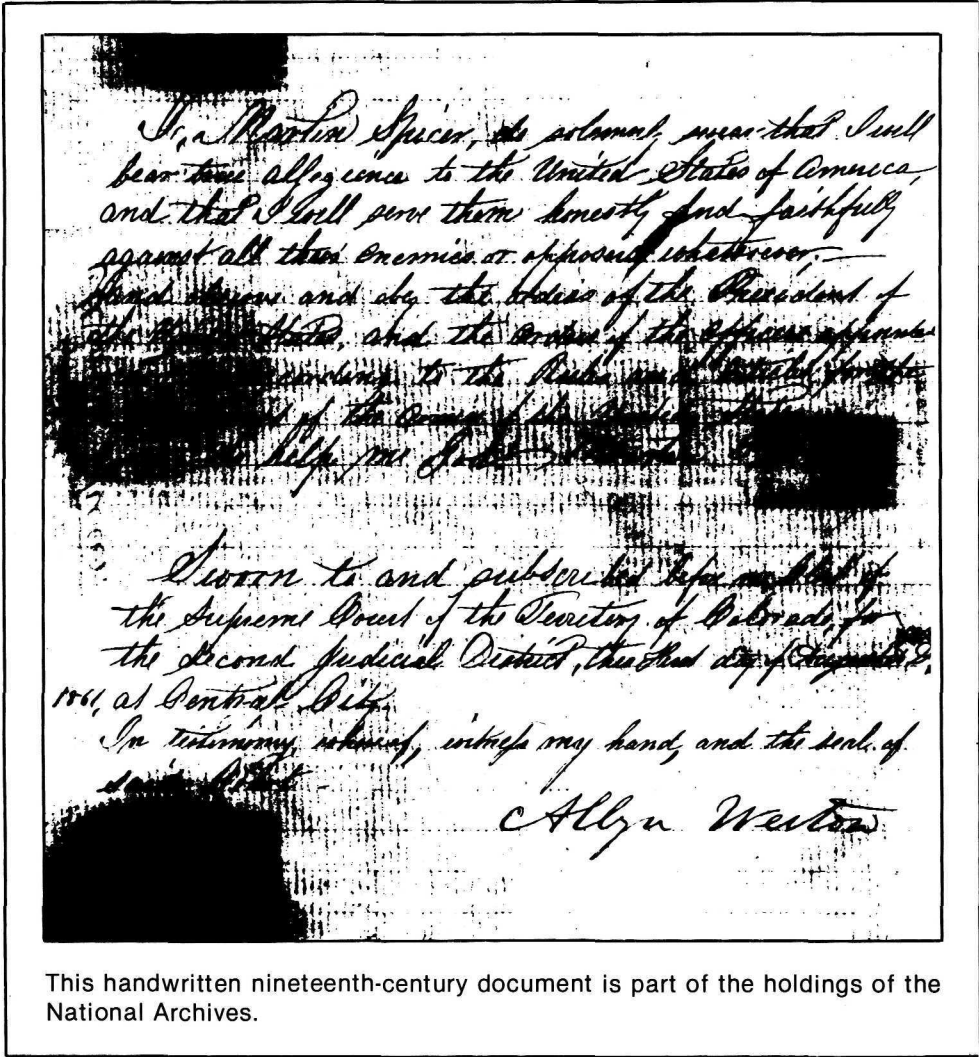 I, Martin Spicer, do solemnly swear that I will
bear true allegience to the United States of America,
and that I will serve them honestly and faithfully
against all their enemies or opposers whatsoever,
and observe and obey the orders of the President of
the United States, and the orders of the officers appointed
according to the Rules and Articles for the
of the army of the United States
help me God. Martin
Sworn to and subscribed before me, Clerk of
the Supreme Court of the Territory of Colorado, for
the Second Judicial District, this day of August A.D.
1861, at Central City.
In testimony whereof, witness my hand, and the seal of
said Court
Allyn Weston
This handwritten nineteenth-century document is part of the holdings of the
National Archives.